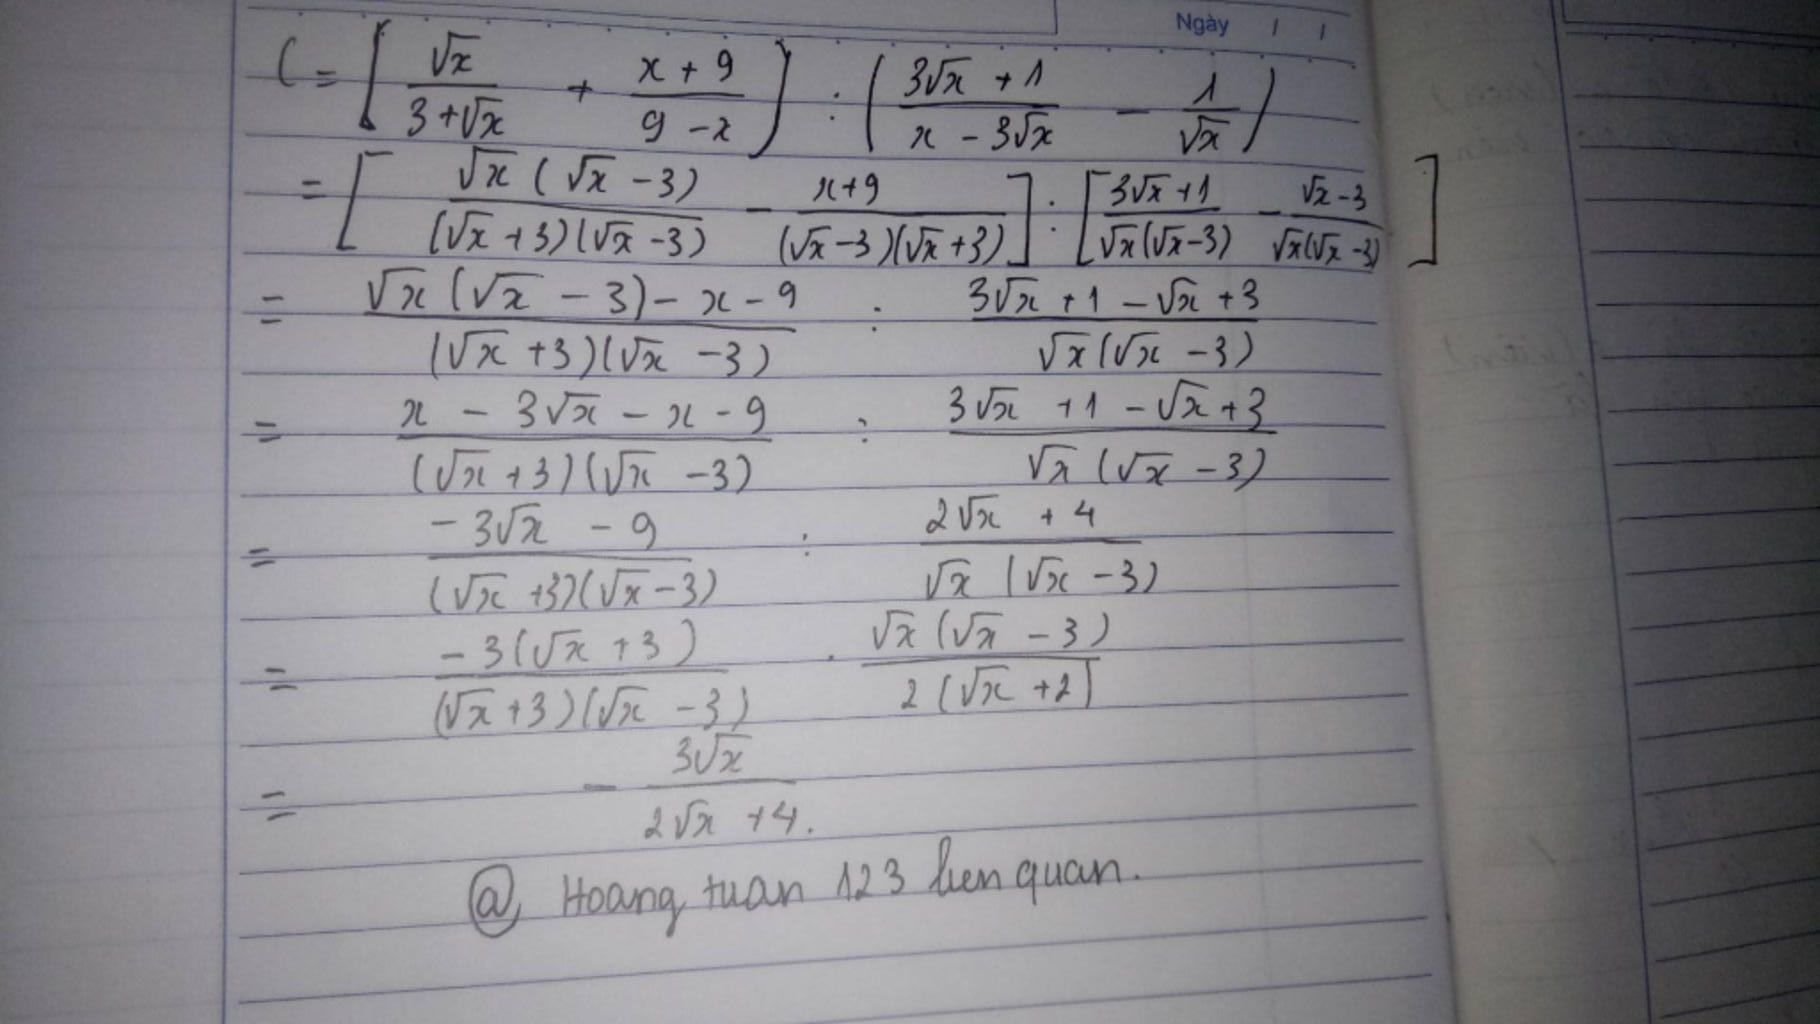 Ngày / /
C = [ √x / (3+√x) + (x + 9) / (9 - x) ] : ( (3√x + 1) / (x - 3√x) - 1 / √x )
= [ √x (√x - 3) / (√x + 3)(√x - 3) - (x+9) / (√x - 3)(√x + 3) ] : [ (3√x + 1) / √x(√x - 3) - (√x - 3) / √x(√x - 3) ]
= (√x (√x - 3) - x - 9) / (√x + 3)(√x - 3) : (3√x + 1 - √x + 3) / √x(√x - 3)
= (x - 3√x - x - 9) / (√x + 3)(√x - 3) : (3√x + 1 - √x + 3) / √x (√x - 3)
= (- 3√x - 9) / (√x + 3)(√x - 3) : (2√x + 4) / √x (√x - 3)
= - 3(√x + 3) / (√x + 3)(√x - 3) . √x (√x - 3) / 2 (√x + 2)
= - 3√x / (2√x + 4).
@, Hoang tuan 123 lien quan.